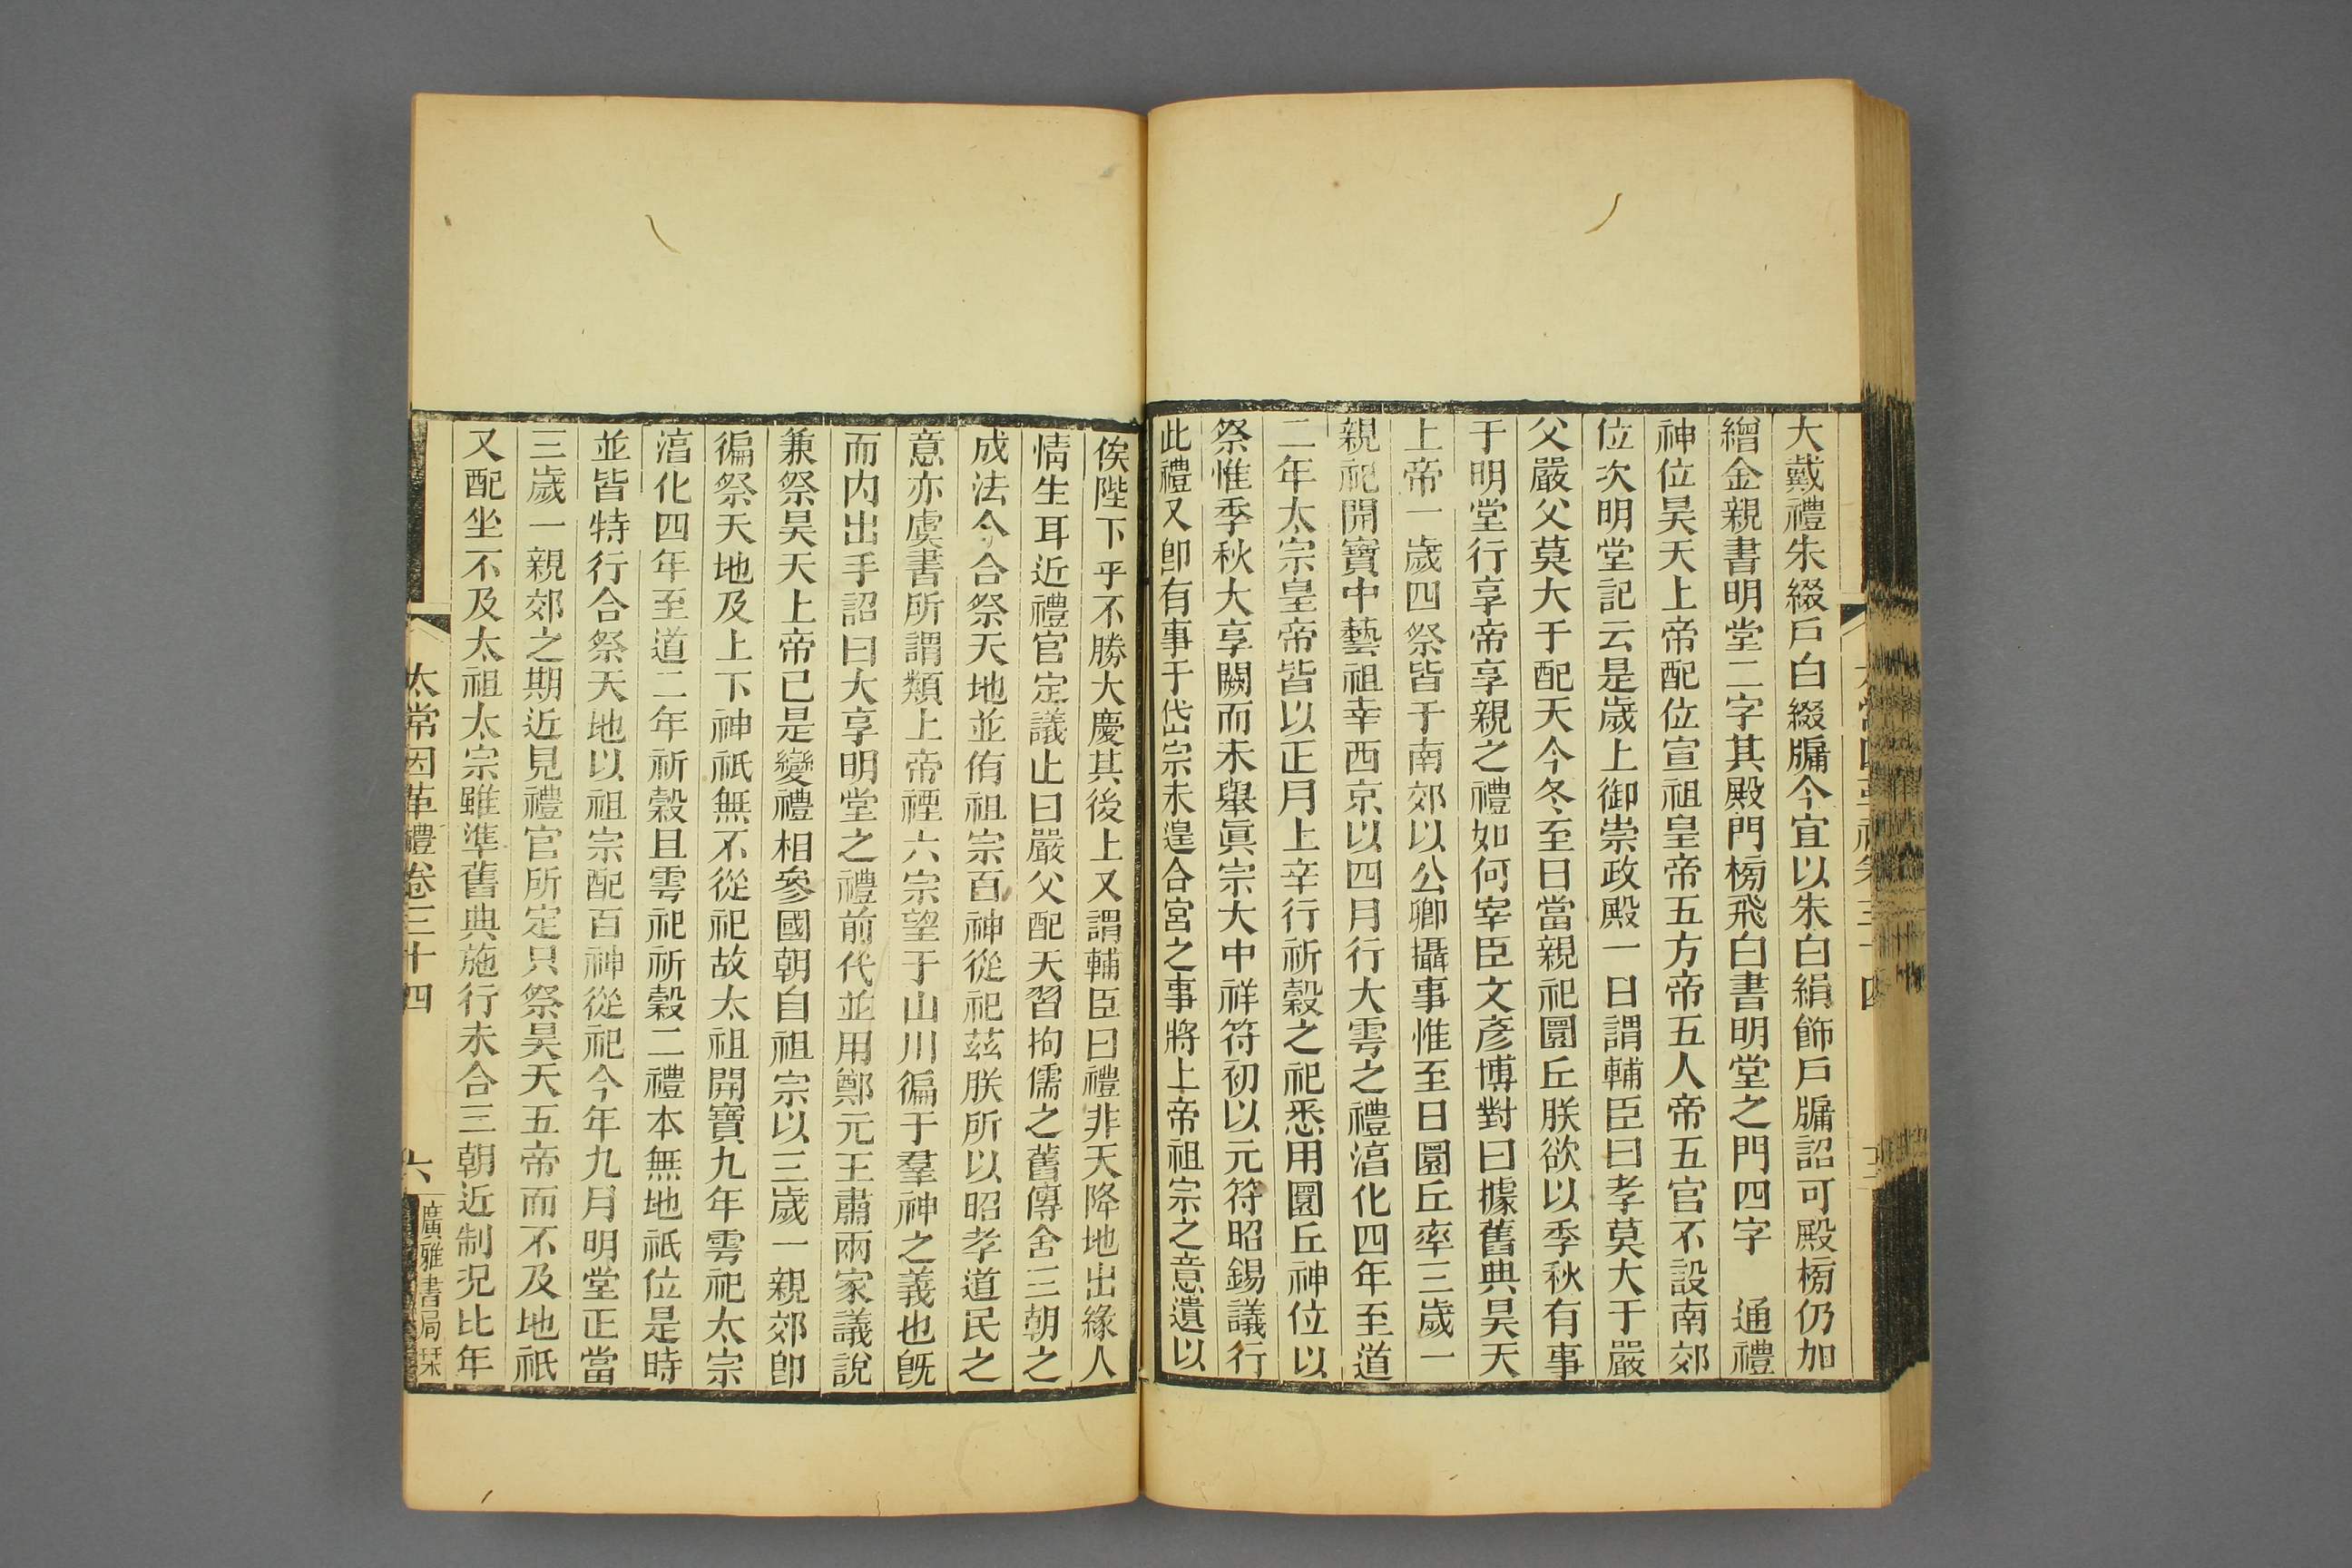 大戴禮朱綴戶白綴牖今宜以朱白絹飾戶牖詔可殿榜仍加
繒金親書明堂二字其殿門榜飛白書明堂之門四字　通禮
神位昊天上帝配位宣祖皇帝五方帝五人帝五官不設南郊
位次明堂記云是歲上御崇政殿一日謂輔臣曰孝莫大于嚴
父嚴父莫大于配天今冬至日當親祀圜丘朕欲以季秋有事
于明堂行享帝享親之禮如何宰臣文彥博對曰據舊典昊天
上帝一歲四祭皆于南郊以公卿攝事惟至日圜丘率三歲一
親祀開寶中藝祖幸西京以四月行大雩之禮淯化四年至道
二年太宗皇帝皆以正月上辛行祈穀之祀悉用圜丘神位以
祭惟季秋大享闕而未舉眞宗大中祥符初以元符昭錫議行
此禮又卽有事于岱宗未遑合宮之事將上帝祖宗之意遺以
俟陛下乎不勝大慶其後上又謂輔臣曰禮非天降地出緣人
情生耳近禮官定議止曰嚴父配天習拘儒之舊傳舍三朝之
成法今合祭天地並侑祖宗百神從祀茲朕所以昭孝道民之
意亦虞書所謂類上帝禋六宗望于山川徧于羣神之義也旣
而內出手詔曰大享明堂之禮前代並用鄭元王肅兩家議說
兼祭昊天上帝已是變禮相參國朝自祖宗以三歲一親郊卽
徧祭天地及上下神祇無不從祀故太祖開寶九年雩祀太宗
淯化四年至道二年祈穀且雩祀祈穀二禮本無地祇位是時
並皆特行合祭天地以祖宗配百神從祀今年九月明堂正當
三歲一親郊之期近見禮官所定只祭昊天五帝而不及地祇
又配坐不及太祖太宗雖準舊典施行未合三朝近制況比年
太常因革禮卷三十四　六
廣雅書局栞